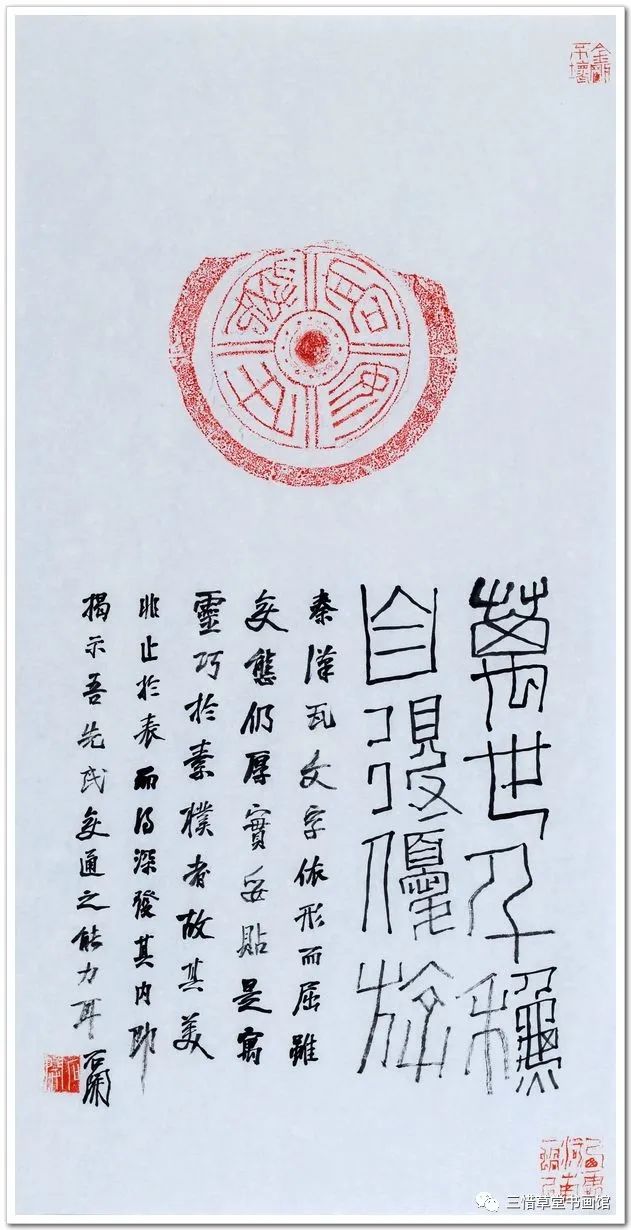 萬世千龝
自得優游
秦漢瓦文字依形而屈雖
變態仍厚實妥貼是寓
靈巧於素樸者故其美
非止於表而得深發其内即
揭示吾先民變通之能力耳 石開
金剛不壞
三惜草堂书画馆